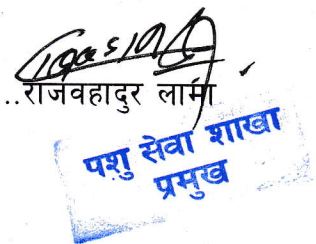 ..राजवहादुर लामा
पशु सेवा शाखा
प्रमुख